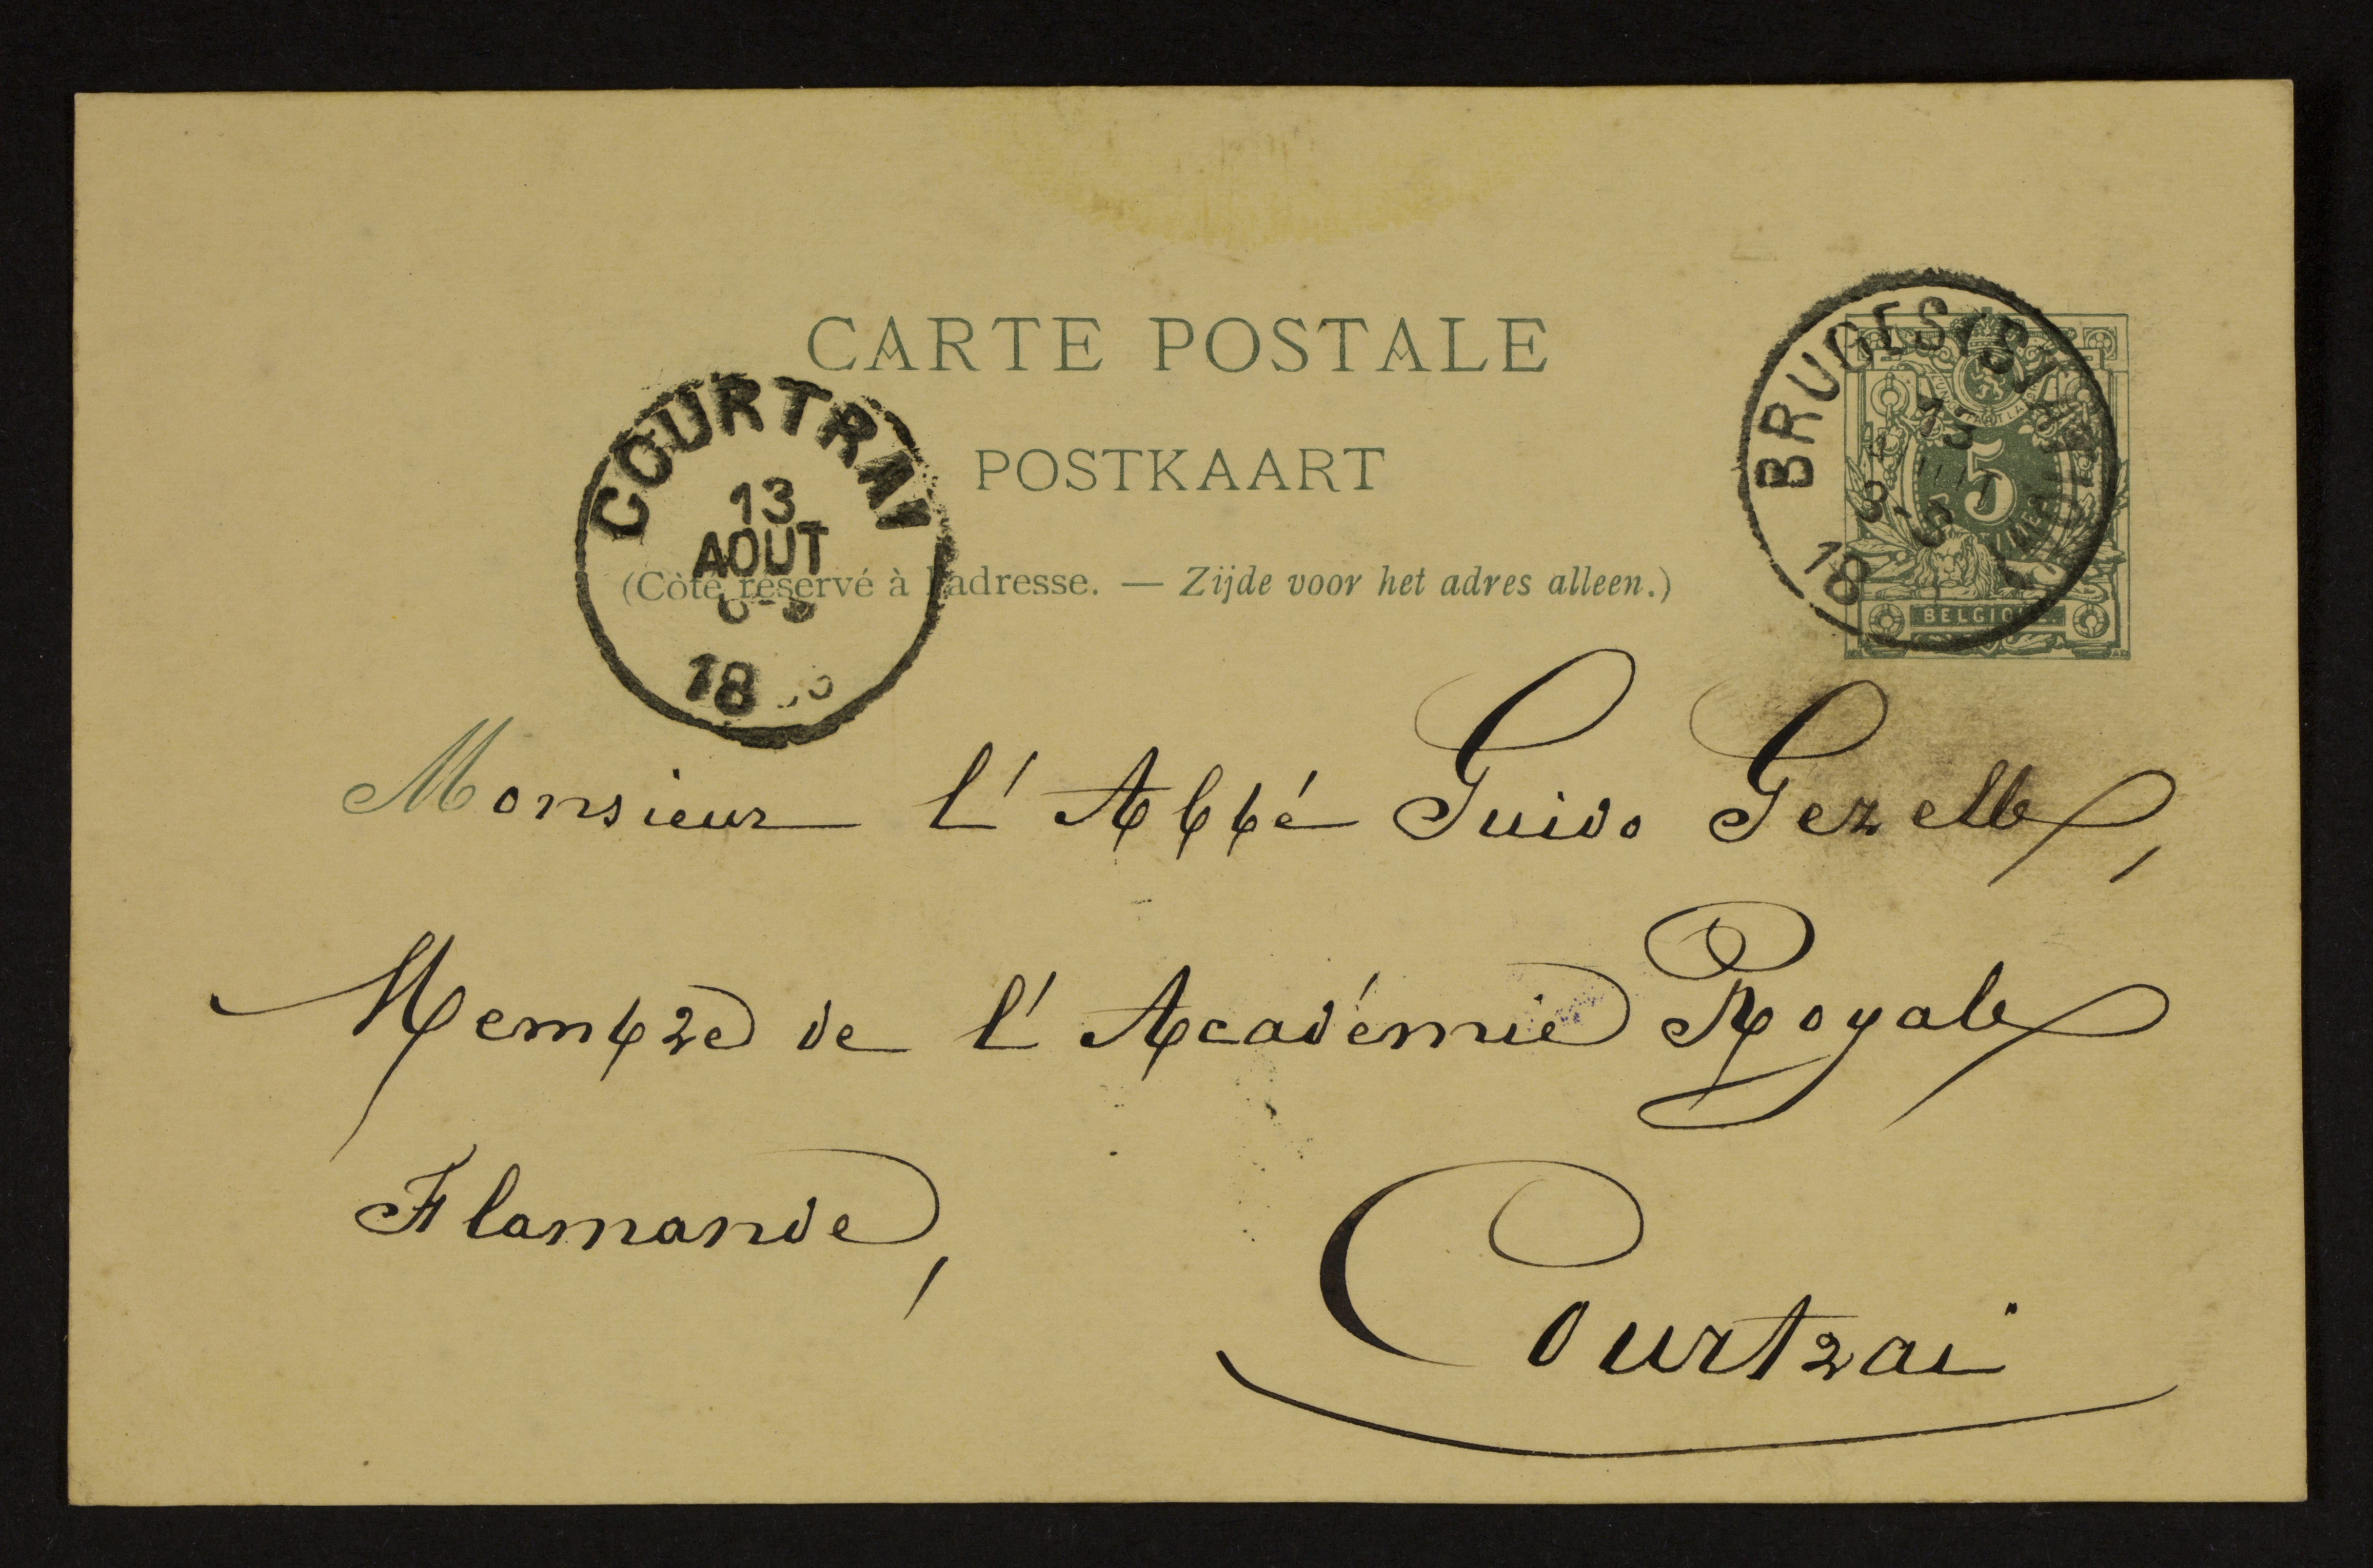 CARTE POSTALE
POSTKAART
(Côté réservé à l'adresse. — Zijde voor het adres alleen.)
COURTRAI
13
AOUT
18
BRUGES (S
13
18
5
BELGIQUE
Monsieur l'Abbé Guido Gezelle,
Membre de l'Académie Royale
Flamande,
Courtrai